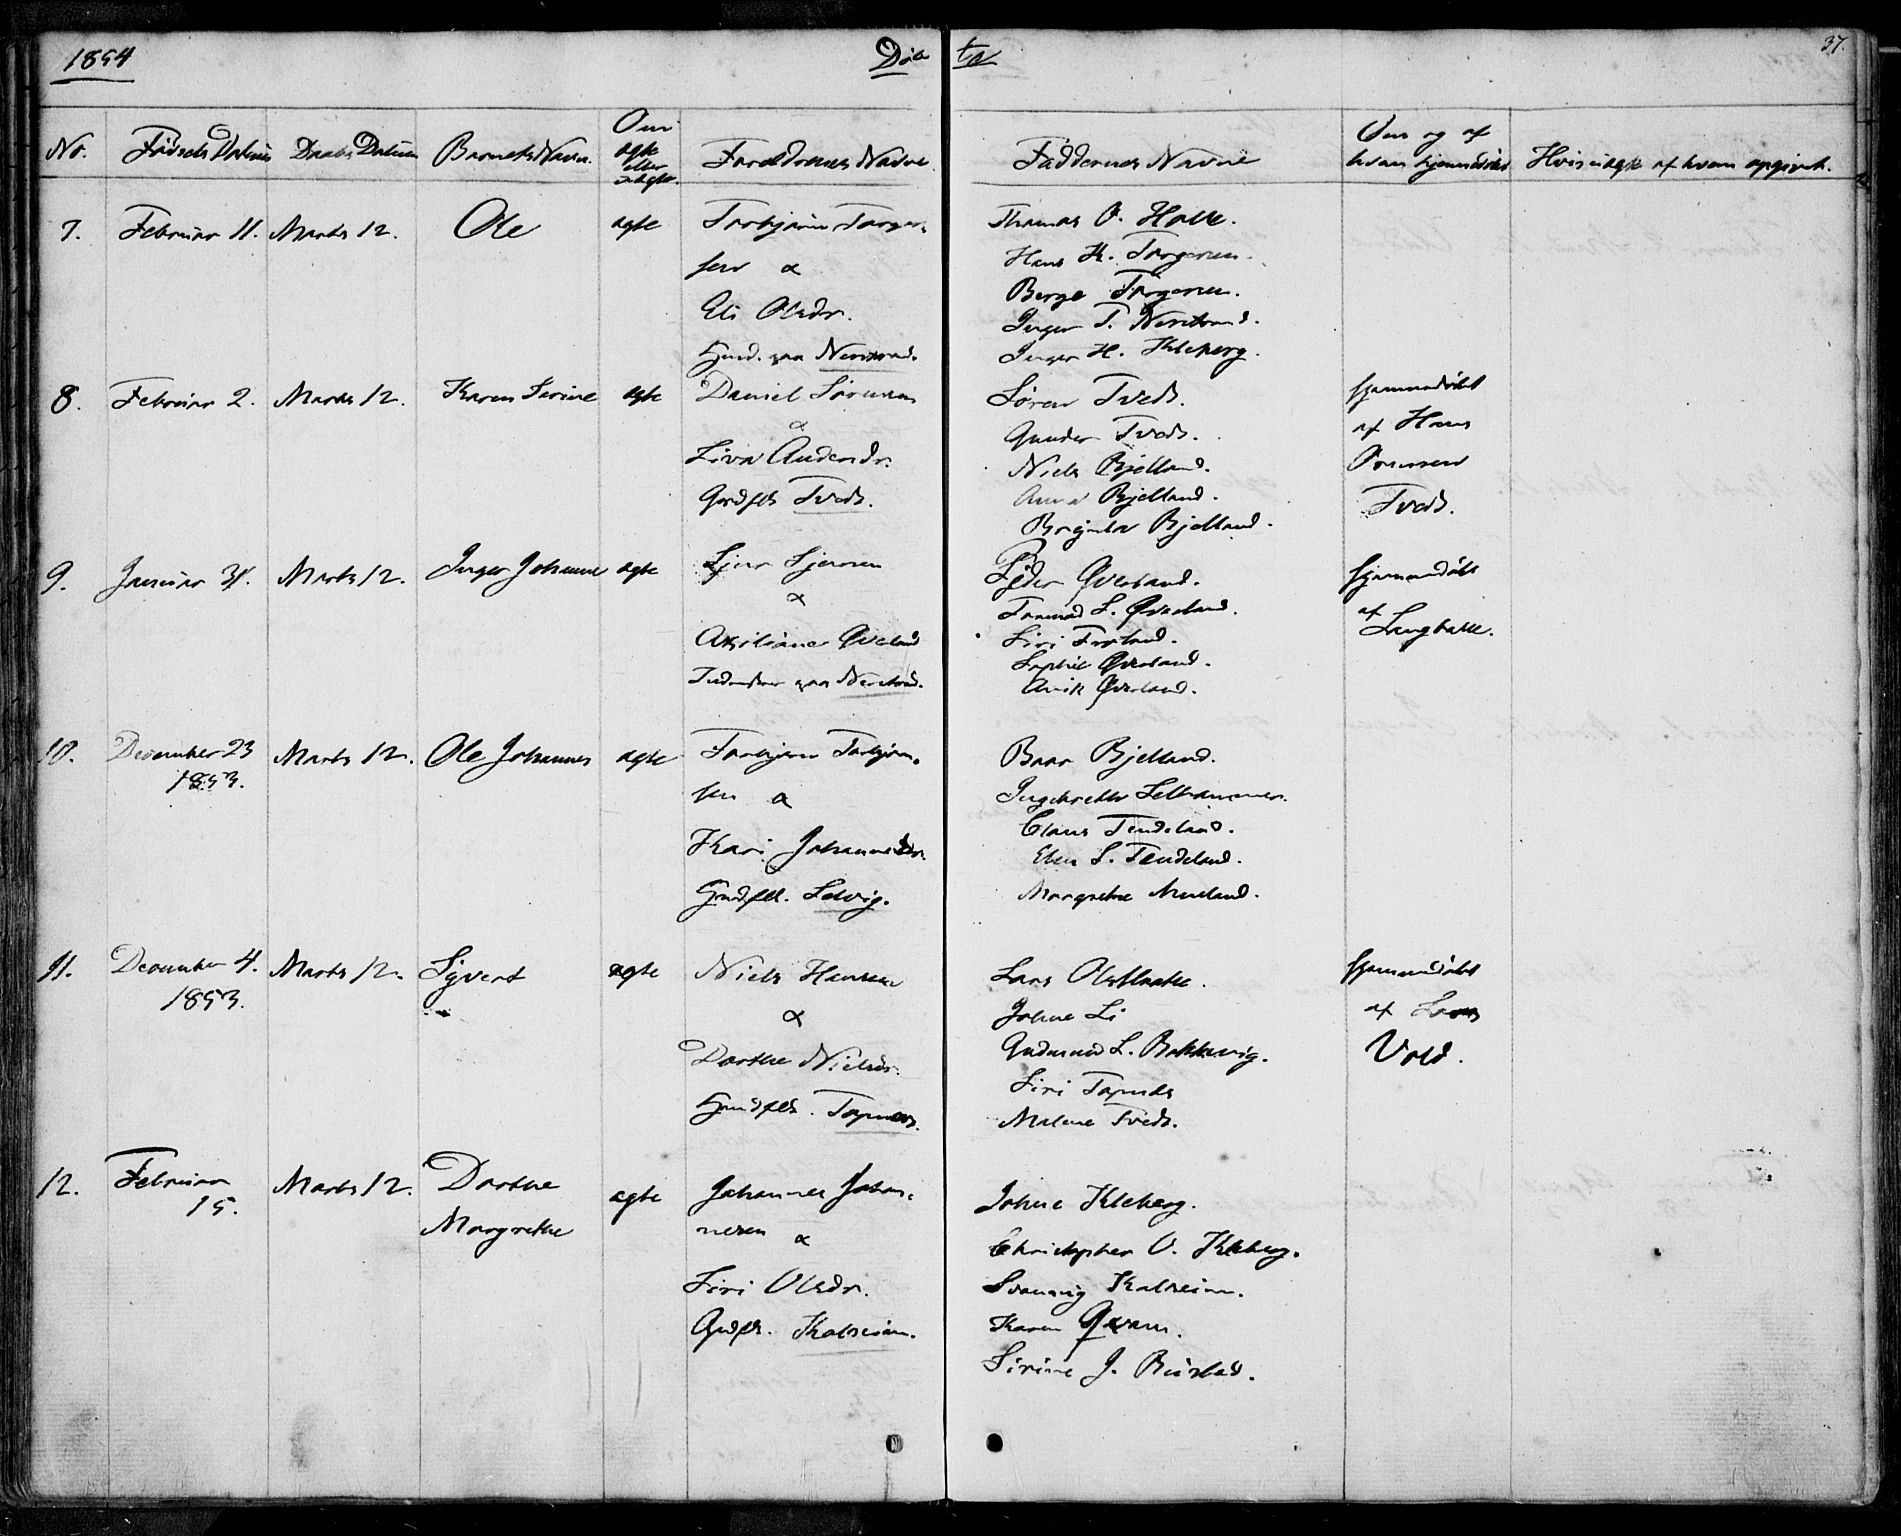 1854
Døb
te
37.
No.
Fødsels Datum
Daabs Datum
Barnets Navn.
Om
ægte
eller
uægte.
Forældrenes Navne
Faddernes Navne
Om og af
hvem hjemmedøbt
Hvis uægte af hvem opgivet.
7.
Februar 11.
Marts 12.
Ole
ægte
Torbjørn Torger-
sen &
Eli Olsdr.
Husm. paa Nerstrand.
Thomas O. Halle.
Hans H. Torgersen.
Berge Torgersen.
Inger T. Nerstrand.
Inger H. Kleberg.
8.
Februar 2.
Marts 12.
Karen Serine
ægte
Daniel Sørensen
&
Siva Andersdr.
Grdflk Tveds.
Søren Tveds.
Gunder Tveds.
Niels Bjelland.
Anna Bjelland.
Bjelland.
hjemmedøbt
af Hans
Sørensen
Tveds.
9.
Januar 31.
Marts 12.
Inger Johanne
ægte
Sjur Sjursen
&
Øverland
paa Nerstrand.
Peder Øverland.
Tormod L. Øverland.
Siri Frøland.
Sophie Øverland.
Øverland.
hjemmedøbt
af
Langballe.
10.
December 23
1853.
Marts 12.
Ole Johannes
ægte
Torbjørn Torbjørn-
sen &
Kari Johannesdr.
Grdflk. Selvig.
Baar Bjelland.
Ingebrethe Selhammer.
Claus Tendeland.
Elen S. Tendeland.
Margrethe Mæland.
11.
December 4.
1853.
Marts 12.
Syvert
ægte
Niels Hansen
&
Dorthe Nielsdr.
Husmflk. Topnæs.
Lars
Johne Li
Gudmund L. Bokkevig.
Siri Topnæs
Malene Tveds.
hjemmedøbt
af Lars
Vold.
12.
Februar
15.
Marts 12.
Dorthe
Margrethe
ægte
Johannes Johan-
nesen &
Siri Olsdr.
Grdflk. Kalheim.
Johne Kleberg.
Christopher O. Kleberg.
Svanaug Kalheim.
Karen Qvam.
Sirine J. Bustad.